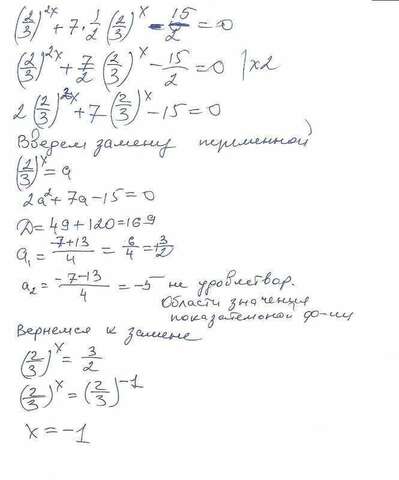 (2/3)^2x + 7·1/2 (2/3)^x - 15/2 = 0
(2/3)^2x + 7/2 (2/3)^x - 15/2 = 0 | x2
2 (2/3)^2x + 7 (2/3)^x - 15 = 0
Введем замену переменной
(2/3)^x = a
2a² + 7a - 15 = 0
D = 49 + 120 = 169
a₁ = -7+13/4 = 6/4 = 3/2
a₂ = -7-13/4 = -5 не удовлетвор.
области значения
показательной ф-ии
Вернемся к замене
(2/3)^x = 3/2
(2/3)^x = (2/3)^-1
x = -1